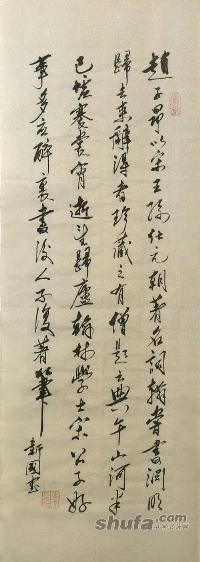 趙子昂以宋王孫仕元朝著名詞翰嘗書淵明
歸去來辭得者珍藏之有僧題云典午山河半
已墟褰裳宵逝望歸廬翰林學士宋公子好
事多應醉裏書後人不復著筆
新國書
shufa.com